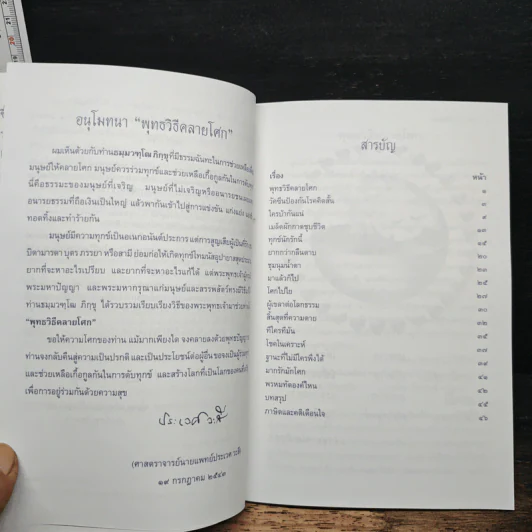 อนุโมทนา "พุทธวิธีคลายโศก"
ผมเห็นด้วยกับท่านธมฺมวฑฺโฒ ภิกฺขุ ที่มีธรรมฉันทะในการช่วยเหลือเพื่อน
มนุษย์ให้คลายโศก มนุษย์ควรร่วมทุกข์และช่วยเหลือเกื้อกูลกันในการดับทุกข์
นี่คือธรรมะของมนุษย์ที่เจริญ มนุษย์ที่ไม่เจริญหรืออนารยชนจะ
อนารยธรรมที่ถือเงินเป็นใหญ่ แล้วพากันเข้าไปสู่การแข่งขัน แก่งแย่ง
ทอดทิ้งและทำร้ายกัน
มนุษย์มีความทุกข์เป็นอเนกอนันต์ประการ แต่การสูญเสียผู้เป็นที่รัก
บิดามารดา บุตร ภรรยา หรือสามี ย่อมก่อให้เกิดทุกข์โทมนัสอุปายาส
ยากที่จะหาอะไรเปรียบ และยากที่จะหาอะไรแก้ได้ แต่พระพุทธเจ้า
พระมหาปัญญา และพระมหากรุณาแก่มนุษย์และสรรพสัตว์ทรงมีวิธี
ท่านธมฺมวฑฺโฒ ภิกฺขุ ได้รวบรวมเรียบเรียงวิธีของพระพุทธเจ้ามาช่วย
"พุทธวิธีคลายโศก"
ขอให้ความโศกของท่าน แม้มากเพียงใด จงคลายลงด้วยพุทธปัญญา
ท่านจงกลับคืนสู่ความเป็นปรกติ และเป็นประโยชน์ต่อผู้อื่น ขอจงเป็นผู้ร่วมทุกข์
และช่วยเหลือเกื้อกูลกันในการดับทุกข์ และสร้างโลกที่เป็นโลกของคนที่
เพื่อการอยู่ร่วมกันด้วยความสุข
ประเวศ วะสี
(ศาสตราจารย์นายแพทย์ประเวศ วะสี)
๑๙ กรกฎาคม ๒๕๔๓
สารบัญ
เรื่อง หน้า
พุทธวิธีคลายโศก ๑
วัคซีนป้องกันโรคคือสิ้น ๓
ใครบ้ากันแน่ ๙
เมล็ดผักกาดชุบชีวิต ๑๑
ทุกข์นักรักนี้ ๑๕
ยากกว่ากลืนดาบ ๒๐
ขุมนุมน้ำตา ๒๑
มาแล้วก็ไป ๒๕
โศกไปใย ๒๗
ผู้เขลาต่อโลกธรรม ๓๐
สิ้นสุดที่ความตาย ๓๒
ที่ใครที่มัน ๓๕
โชคในเคราะห์ ๓๗
ฐานะที่ไม่มีใครพึงได้ ๓๙
มากรักมักโศก ๔๑
พรหมทัตองค์ไหน ๔๒
บทสรุป ๔๕
ภาษิตและคติเตือนใจ ๔๖